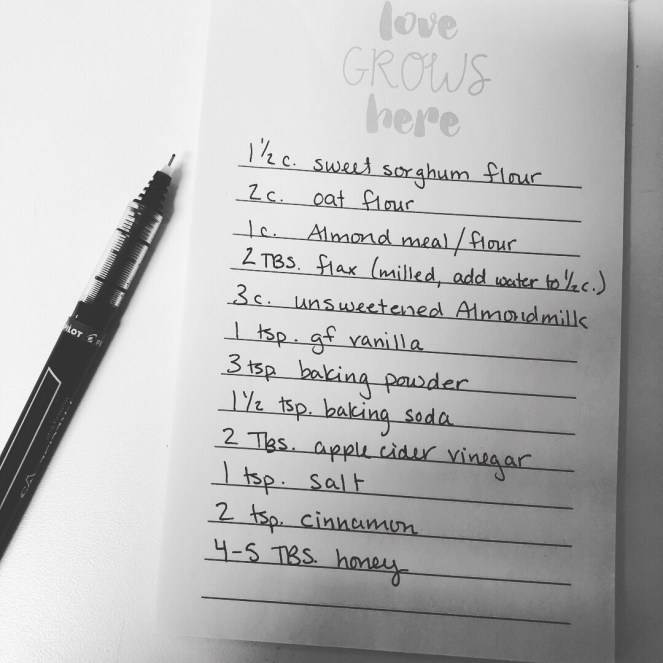 love
GROWS
here
1 1/2 c. sweet sorghum flour
2 c. oat flour
1 c. Almond meal/flour
2 TBS. flax (milled, add water to 1/2 c.)
3 c. unsweetened Almondmilk
1 tsp. gf vanilla
3 tsp baking powder
1 1/2 tsp. baking soda
2 Tbs. apple cider vinegar
1 tsp. salt
2 tsp. cinnamon
4-5 TBS. honey
PILOT